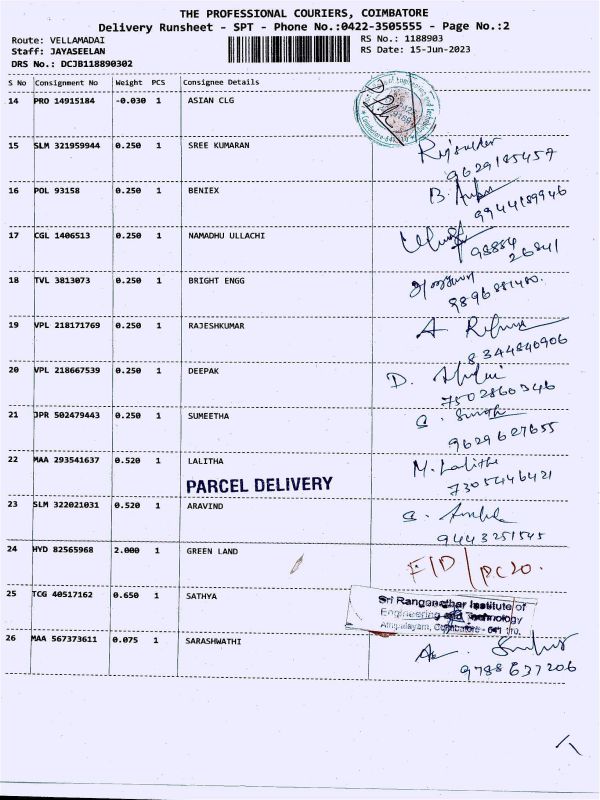 THE PROFESSIONAL COURIERS, COIMBATORE
Delivery Runsheet - SPT - Phone No.:0422-3505555 - Page No.:2
Route: VELLAMADAI RS No.: 1188903
Staff: JAYASEELAN RS Date: 15-Jun-2023
DRS No.: DCJB118890302
S No Consignment No Weight PCS Consignee Details
14 PRO 14915184 -0.030 1 ASIAN CLG
15 SLM 321959944 0.250 1 SREE KUMARAN
9629185457
16 POL 93158 0.250 1 BENIEX
9944189946
17 CGL 1406513 0.250 1 NAMADHU ULLACHI
98884
26841
18 TVL 3813073 0.250 1 BRIGHT ENGG
19 VPL 218171769 0.250 1 RAJESHKUMAR
8344840906
20 VPL 218667539 0.250 1 DEEPAK
D.
7502860346
21 JPR 502479443 0.250 1 SUMEETHA
9629627655
22 MAA 293541637 0.520 1 LALITHA
M. Lalitha
7305446421
PARCEL DELIVERY
23 SLM 322021031 0.520 1 ARAVIND
9443251545
24 HYD 82565968 2.000 1 GREEN LAND
FID/PC20.
25 TCG 40517162 0.650 1 SATHYA
Sri Ranganathar Institute of
Engineering and Technology
Athipalayam, Coimbatore - 641 110.
26 MAA 567373611 0.075 1 SARASHWATHI
9788637206